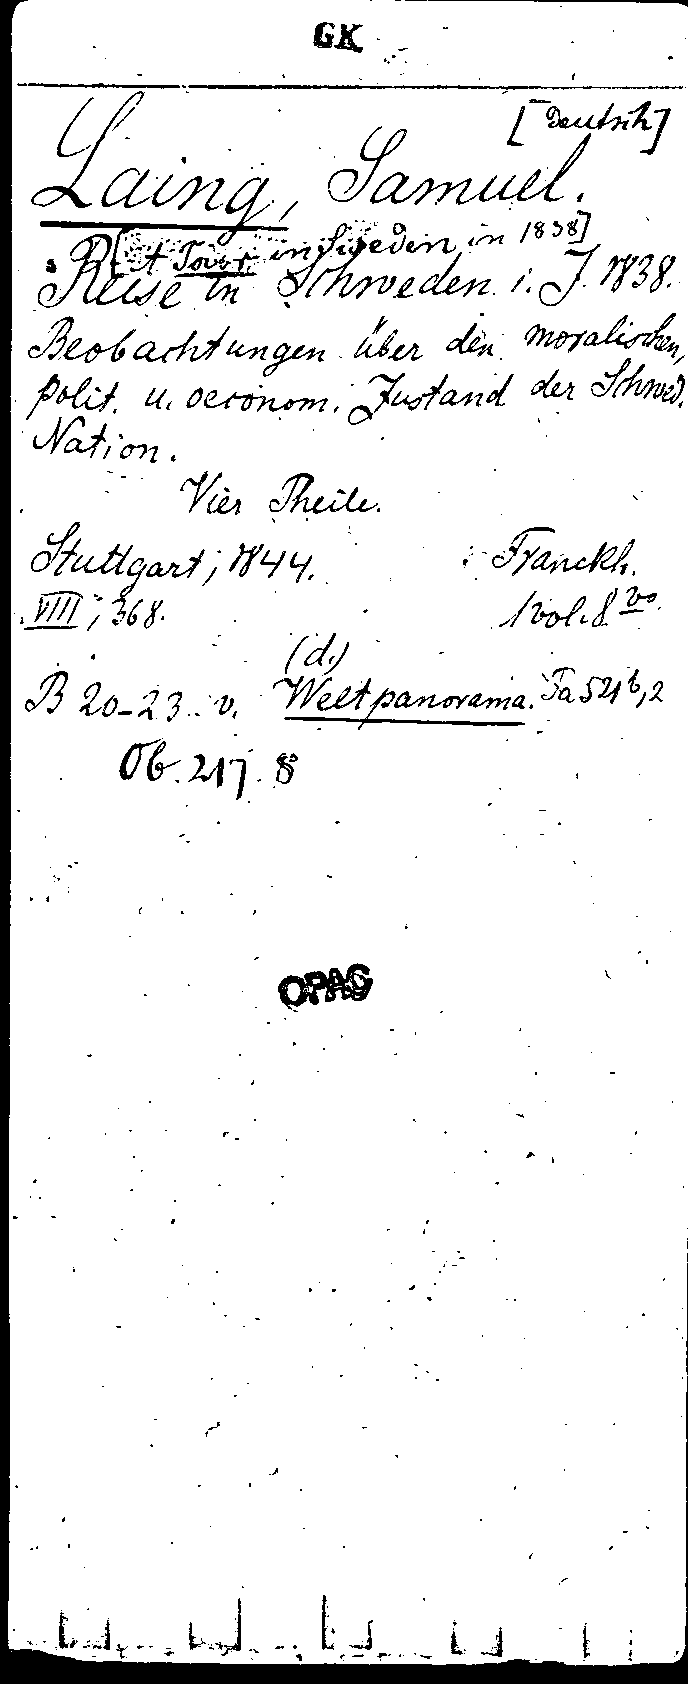 GK
[Deutsch]
Laing, Samuel.
[A Tour in Sweden in 1838]
Reise in Schweden i. J. 1838.
Beobachtungen über den moralischen,
polit. u. oeconom. Zustand der Schwed.
Nation.
Vier Theile.
Stuttgart, 1844. Franckh.
VIII, 368. 1 vol. 8vo.
(d.)
B 20-23 v. Weltpanorama. Fa 521b,2
Ob. 217. 8
OPAC